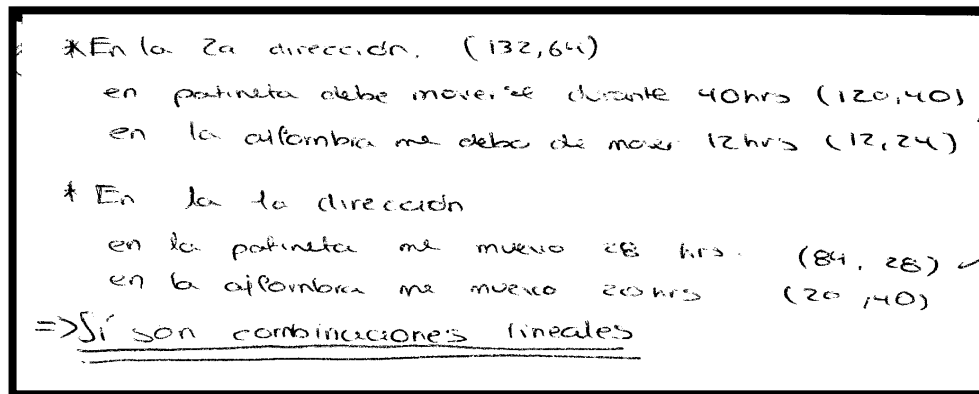 *En la 2a dirección. (132,64)
en patineta debe moverse durante 40hrs (120,40)
en la alfombra me debo de mover 12hrs (12,24)
* En la 1a dirección
en la patineta me muevo 28 hrs. (84, 28) ✓
en la alfombra me muevo 20hrs (20,40)
=>Sí son combinaciones lineales